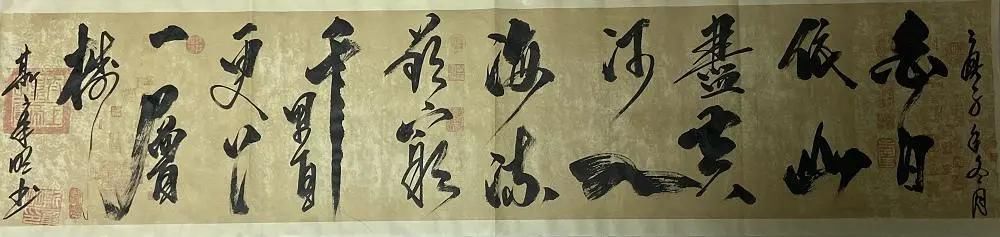 庚子年冬月
白日
依山
盡黄
河入
海流
欲窮
千里目
更上
一層
樓
书